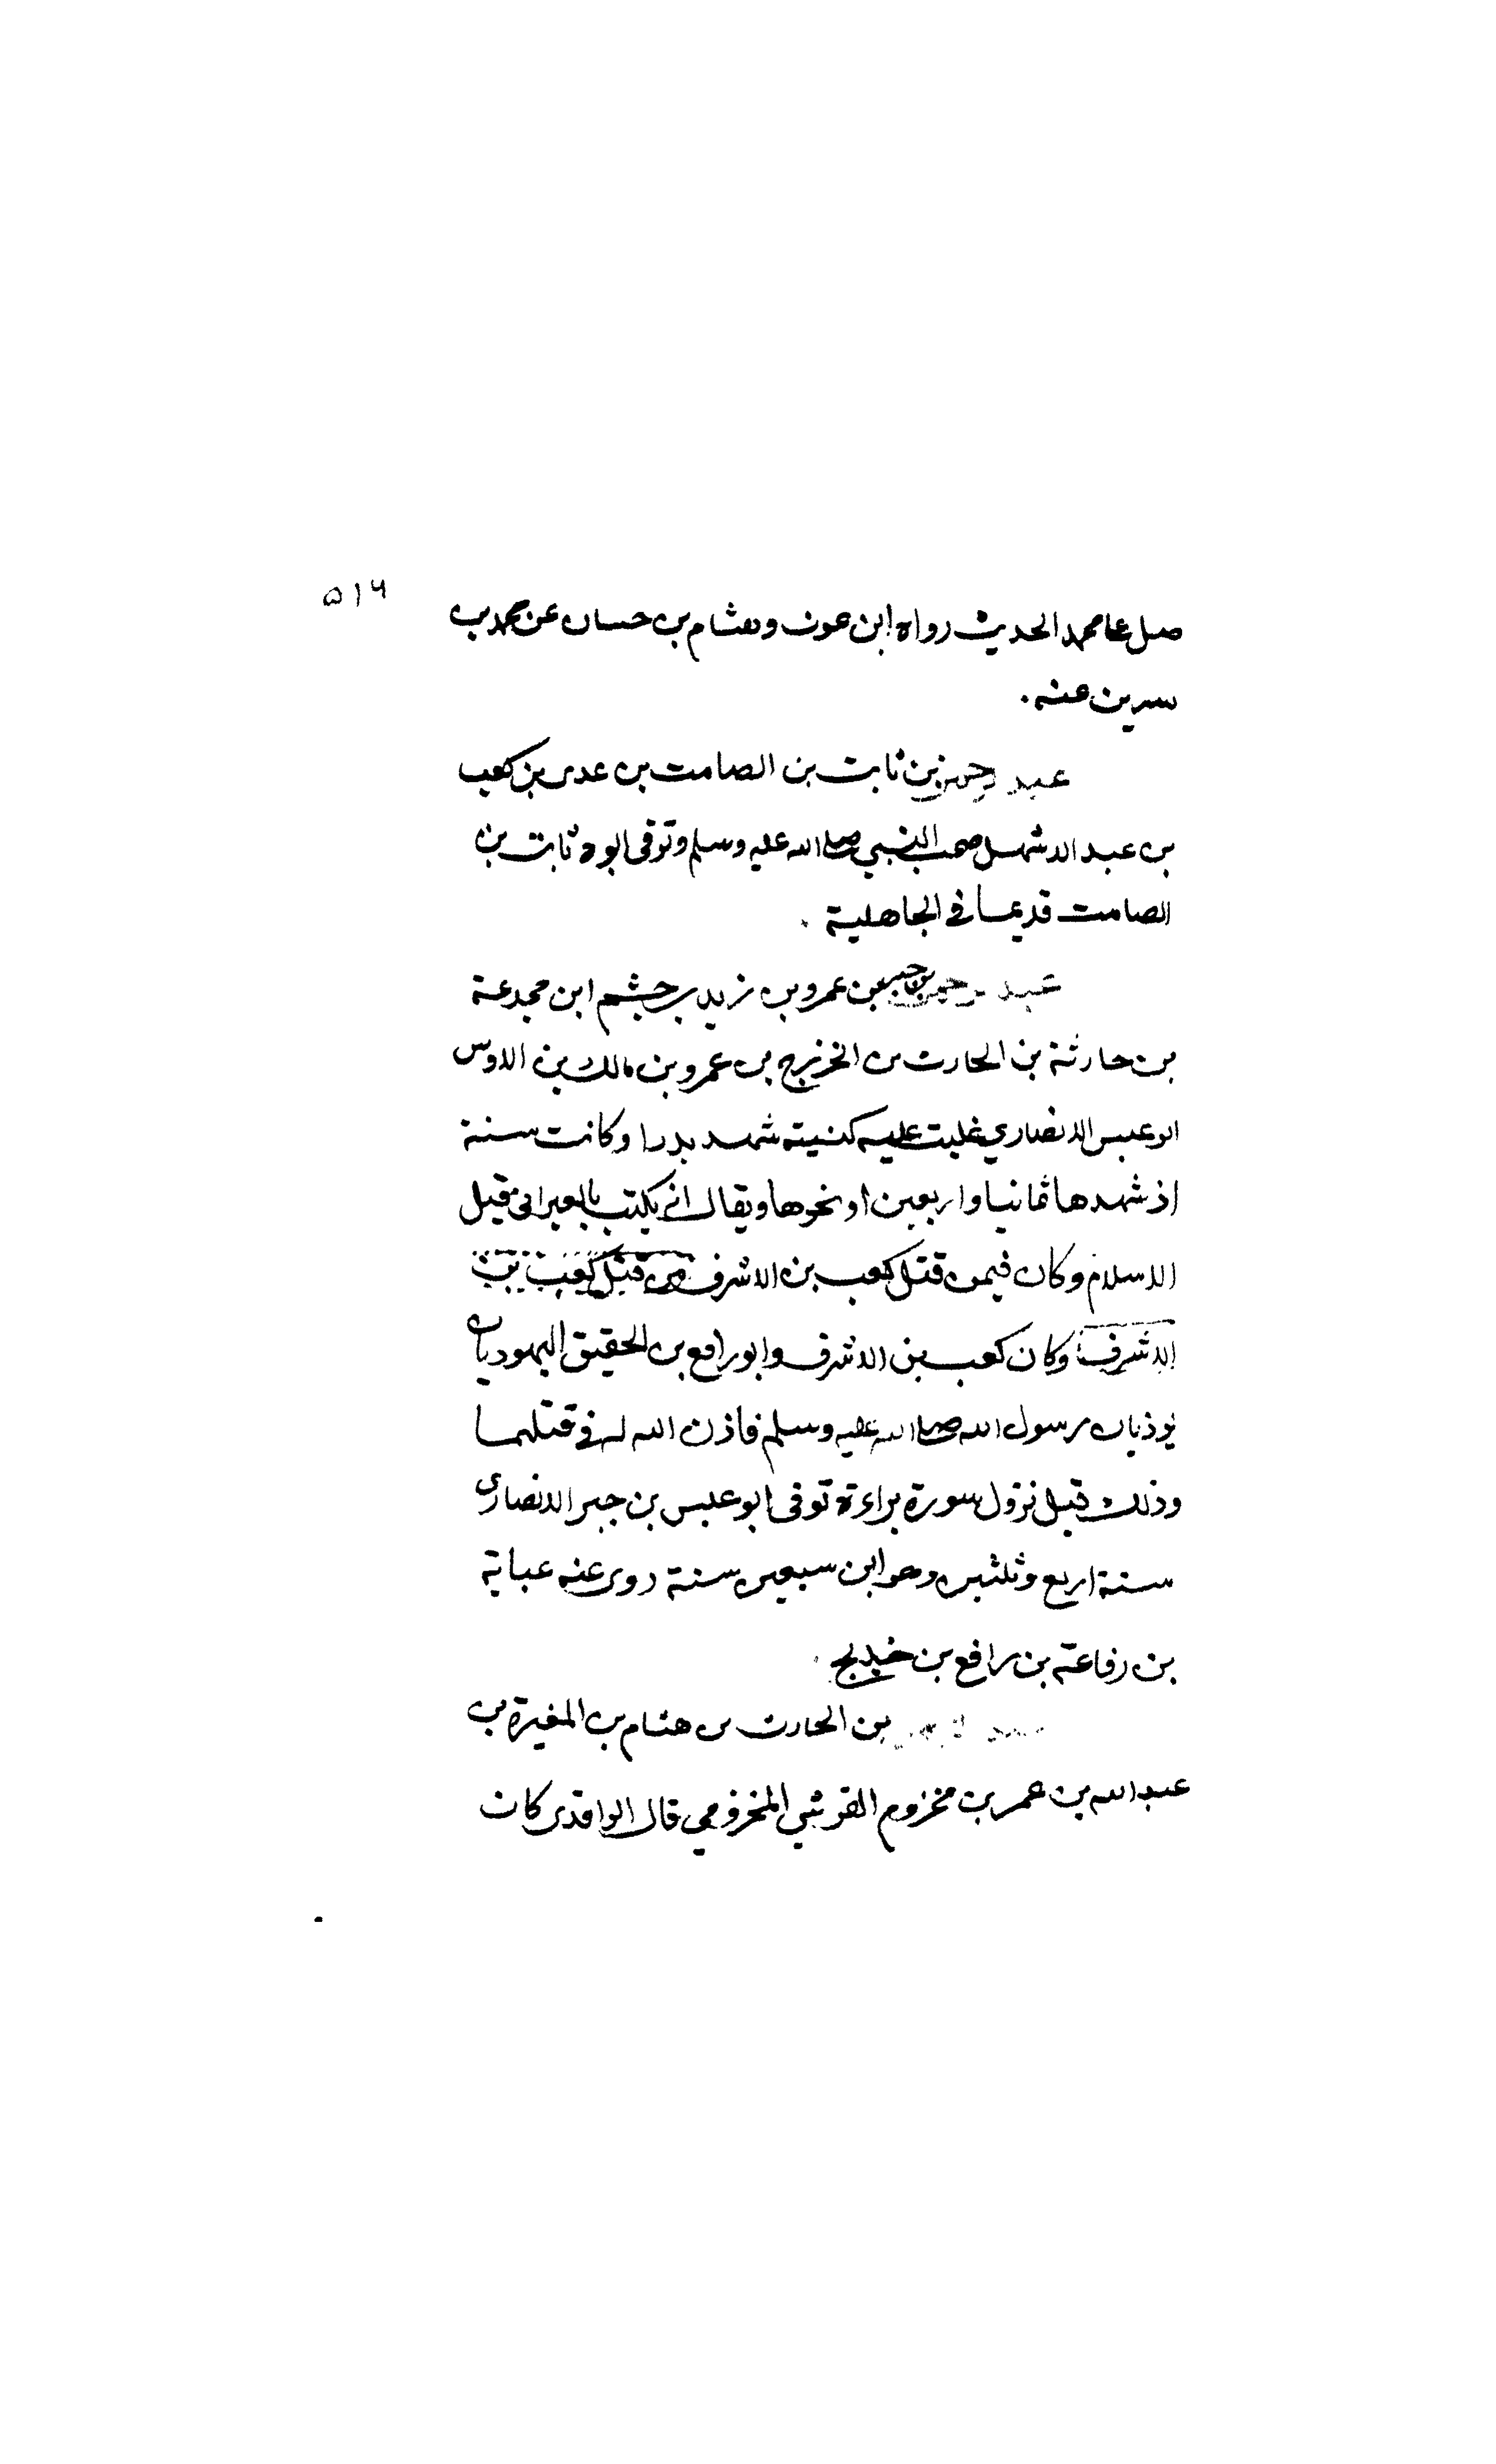 ٥١٦
صل على محمد الحديث رواه ابن عون وهشام بن حسان عن محمد بن
سرين عنه.
عبد الرحمن بن ثابت بن الصامت بن عدى بن كعب
بن عبد الاشهل صحب النبي صلى الله عليه وسلم وتوفى ابوه ثابت بن
الصامت قديما في الجاهلية.
عبد الرحمن بن جبر بن عمرو بن زيد بن جشم ابن مجدعة
بن حارثة بن الحارث بن الخزرج بن عمرو بن مالك بن الاوس
ابو عبس الانصاري غلبت عليه كنيته شهد بدرا وكانت سنة
اذ شهدها ثمانيا واربعين او نحوها ويقال انه يكتب بالعبرانى قبل
الاسلام وكان فيمن قتل كعب بن الاشرف من قتل كعب بن
الاشرف وكان كعب بن الاشرف وابو رافع بن الحقيق اليهوديان
يوذيان رسول الله صلى الله عليه وسلم فاذن الله له في قتلهما
وذلك قبل نزول سورة براءة توفى ابو عبس بن جبر الانصارى
سنة اربع وثلثين وهو ابن سبعين سنة روى عنه عباية
بن رفاعة بن رافع بن خديج.
بن الحارث بن هشام بن المغيرة بن
عبد الله بن عمر بن مخزوم القرشي المخزومي قال الواقدى كان